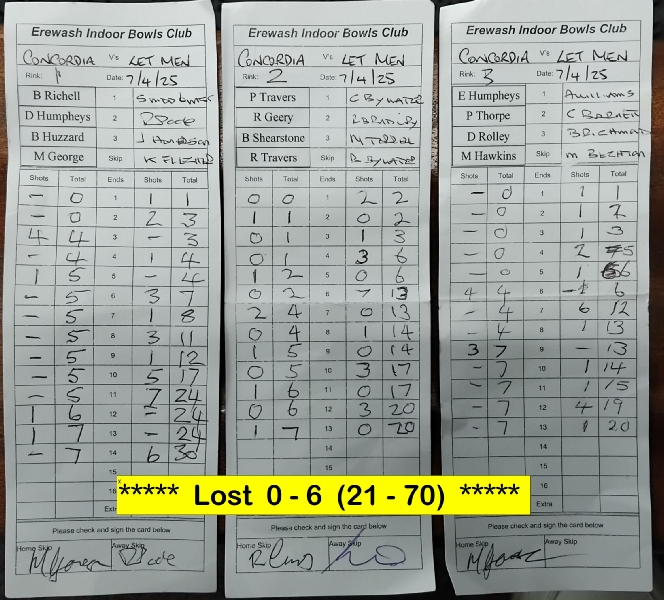 Erewash Indoor Bowls Club
CONCORDIA V's LET MEN
Rink: 1 Date: 7/4/25
B Richell 1
D Humpheys 2
B Huzzard 3 J
M George Skip K
Shots Total Ends Shots Total
- 0 1 1 1
- 0 2 2 3
4 4 3 - 3
- 4 4 1 4
1 5 5 - 4
- 5 6 3 7
- 5 7 1 8
- 5 8 3 11
- 5 9 1 12
- 5 10 5 17
- 5 11 7 24
1 6 12 - 24
1 7 13 - 24
- 7 14 6 30
15
16
Extra
Please check and sign the card below
Home Skip Away Skip
Erewash Indoor Bowls Club
CONCORDIA V's LET MEN
Rink: 2 Date: 7/4/25
P Travers 1 C BYWATER
R Geery 2
B Shearstone 3 M
R Travers Skip R BYWATER
Shots Total Ends Shots Total
0 0 1 2 2
1 1 2 0 2
0 1 3 1 3
0 1 4 3 6
1 2 5 0 6
0 2 6 7 13
2 4 7 0 13
0 4 8 1 14
1 5 9 0 14
0 5 10 3 17
1 6 11 0 17
0 6 12 3 20
1 7 13 0 20
14
15
Please check and sign the card below
Home Skip Away Skip
Erewash Indoor Bowls Club
CONCORDIA V's LET MEN
Rink: 3 Date: 7/4/25
E Humpheys 1 A WILLIAMS
P Thorpe 2 C
D Rolley 3 B
M Hawkins Skip M
Shots Total Ends Shots Total
- 0 1 1 1
- 0 2 1 2
- 0 3 1 3
- 0 4 2 5
- 0 5 1 6
4 4 6 - 6
- 4 7 6 12
- 4 8 1 13
3 7 9 - 13
- 7 10 1 14
- 7 11 1 15
- 7 12 4 19
- 7 13 1 20
14
15
16
Extra
Please check and sign the card below
Home Skip Away Skip
***** Lost 0 - 6 (21 - 70) *****